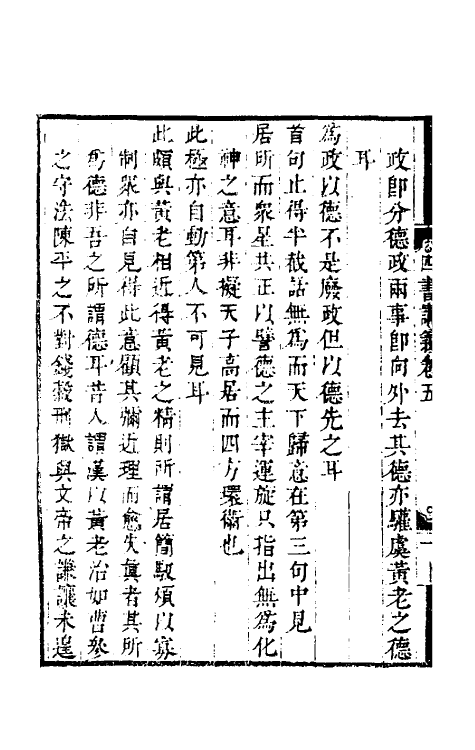 四書講義卷五
一
政卽分德政兩事卽向外去其德亦驩虞黃老之德
耳
爲政以德不是廢政但以德先之耳
首句止得半截話無爲而天下歸意在第三句中見
居所而衆星共正以譬德之主宰運旋只指出無爲化
神之意耳非擬天子高居而四方環衛也
此極亦自動第人不可見耳
此頗與黃老相近得黃老之精則所謂居簡馭煩以寡
制衆亦自見得此意顧其彌近理而愈失眞者其所
爲德非吾之所謂德耳昔人謂漢以黃老治如曹參
之守法陳平之不對錢穀刑獄與文帝之謙讓未遑